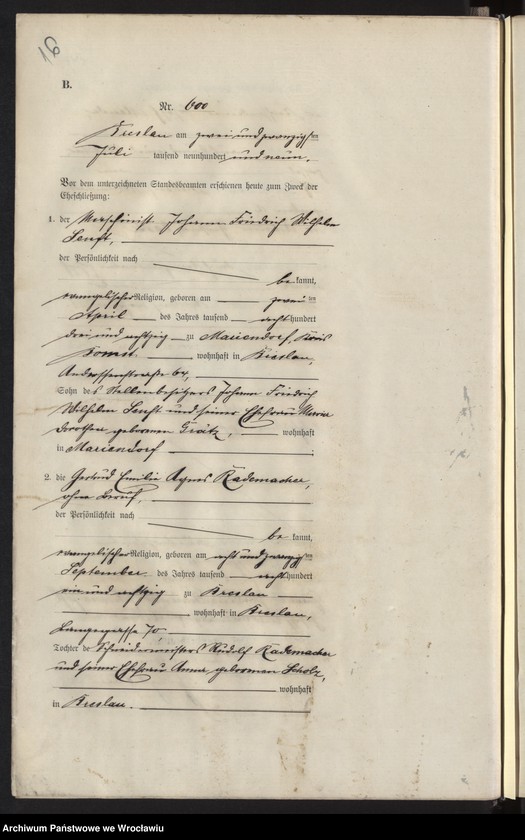 16
B.
Nr. 600
Breslau am zwei und zwanzigsten
Juli tausend neunhundert und neun.
Vor dem unterzeichneten Standesbeamten erschienen heute zum Zweck der
Eheschließung:
1. der Maschinist Johann Friedrich Wilhelm
Senft,
der Persönlichkeit nach
be kannt,
evangelischer Religion, geboren am zwei ten
April des Jahres tausend acht hundert
drei und achtzig zu Mariendorf, Kreis
wohnhaft in Breslau,
Anderssenstrasse 64,
Sohn des Stellenbesitzers Johann Friedrich
Wilhelm Senft und seiner Ehefrau Maria
Dorothea, geborenen Grätz, wohnhaft
in Mariendorf.
2. die Gertrud Emilie Agnes Rademacher,
ohne Beruf,
der Persönlichkeit nach
be kannt,
evangelischer Religion, geboren am acht und zwanzigsten
September des Jahres tausend acht hundert
ein und achtzig zu Breslau
wohnhaft in Breslau,
Langegasse 70,
Tochter des Schneidermeisters Rudolf Rademacher
und seiner Ehefrau Anna, geborenen Scholz,
wohnhaft
in Breslau.
Archiwum Państwowe we Wrocławiu